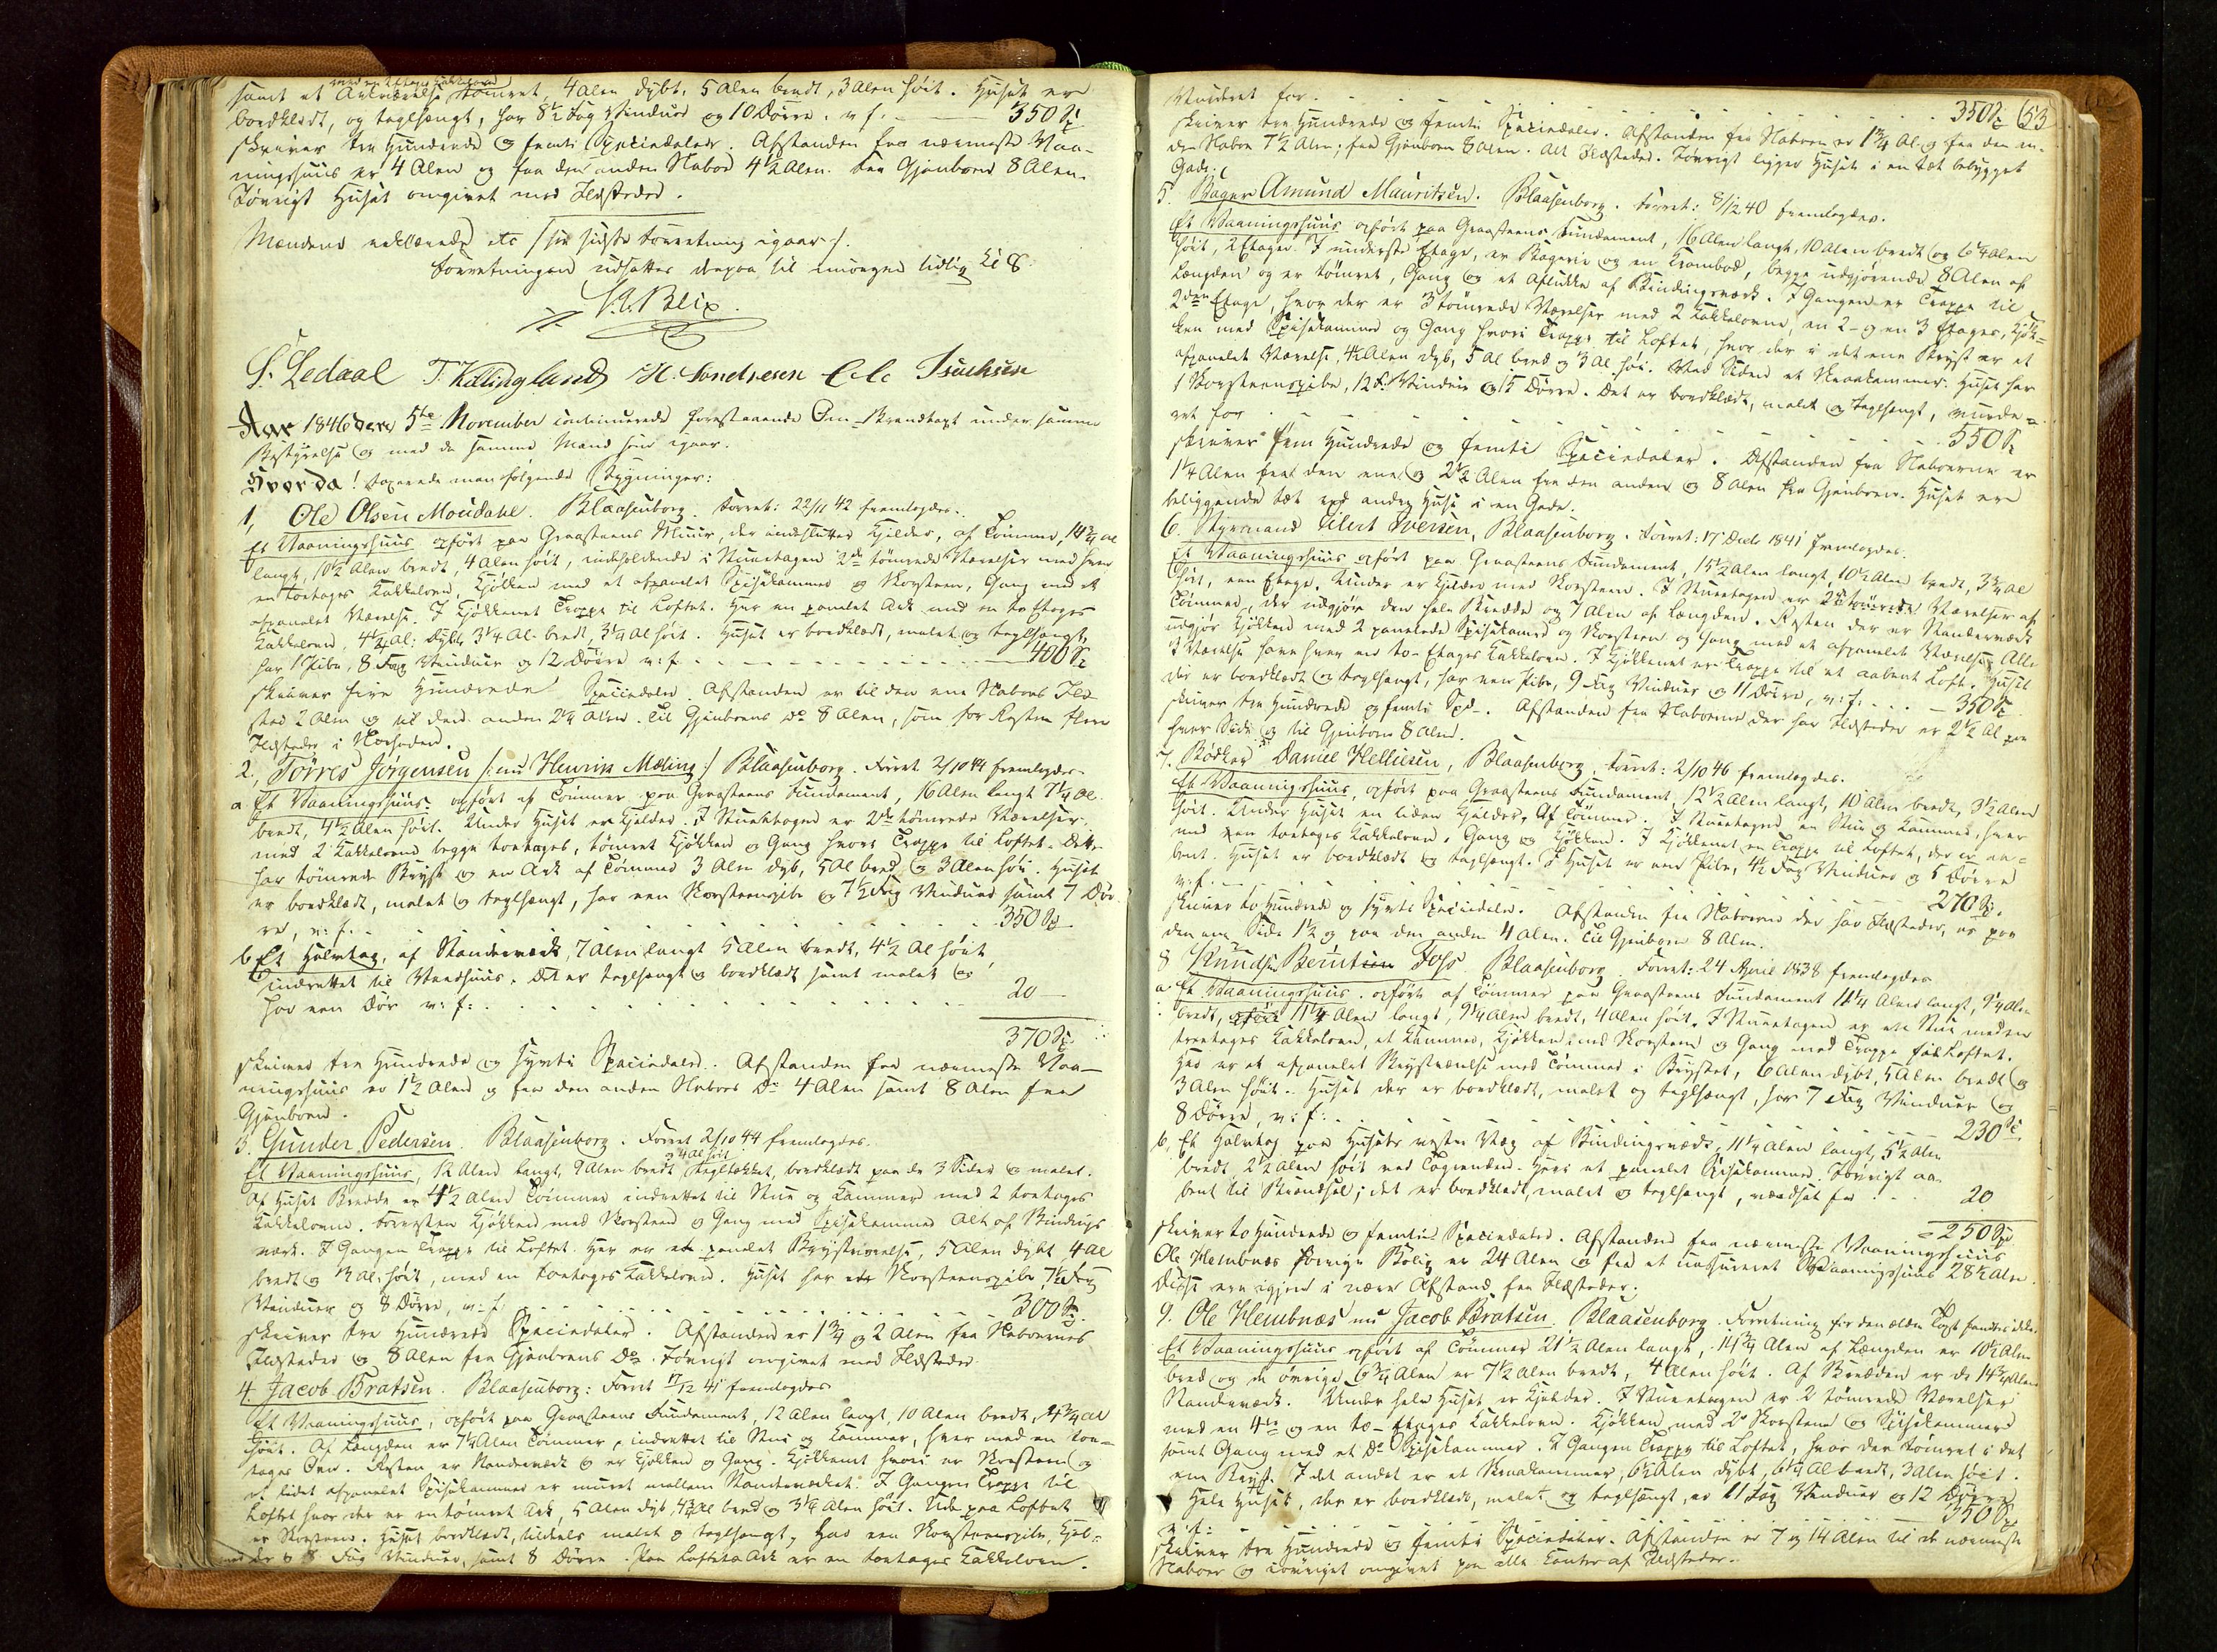 med en 2 Etages Kakkelovn
samt et Arkværelse tømret, 4 Alen dybt, 5 Alen bredt, 3 Alen høit. Huset er
bordklædt, og teglhængt, har 8½ Fag Vinduer og 10 Dørre. v. f. — 350 Sp
skriver tre Hundrede og femti Speciedaler. Afstanden fra nærmeste Vaa-
ningshuus er 4 Alen og fra den anden Nabos 4½ Alen. Fra Gjenboens 8 Alen.
Iøvrigt Huset omgivet med Ildsteder.
Mændene erklærede etc /: see sidste Forretning igaar :/.
Forretningen udsættes derpaa til imorgen tidlig Kl 8.
Blix.
S. Ledaal T. Kællingland H. Sondresen Ole Isachsen
Aar 1846 den 5te November continuerede forestaaende Om-Brandtaxt under samme
Bestyrelse og med de samme Mænd som igaar.
Hvorda! taxerede man følgende Bygninger:
1, Ole Olsen Moudahl. Blaasenborg. Forret: 22/11 42 fremlagdes.
Et Vaaningshuus opført paa Graasteens Muur, der indeslutter Kjelder, af Tømmer, 14¾ Al
langt, 10½ Alen bredt, 4 Alen høit, indeholdende i Stueetagen 2de tømrede Værelser med hver
en toetages Kakkelovn, Kjøkken med et afpanelet Spisekammer og Skorsteen, Gang med et
afpanelet Værelse. I Kjøkkenet Trappe til Loftet. Her en panelet Ark med en to Etages
Kakkelovn, 4¼ Al: dybt, 3¼ Al. bredt, 3¼ Al høit. Huset er bordklædt, malet og teglhængt,
har 1 Pibe, 8 Fag Vinduer og 12 Dørre v: f. — 400 Sp
skriver fire Hundrede Speciedaler. Afstanden er til den ene Nabos Ild-
sted 2 Alen og til den anden 2¼ Alen. Til Gjenboens Do 8 Alen, som for Resten flere
Ildsteder i Nærheden.
2, Törres Jörgensen /: nu Henrik Mæling :/ Blaasenborg. Forret 2/10 44 fremlagdes.
a Et Vaaningshuus: opført af Tømmer paa Graasteens Fundament, 16 Alen langt 7¼ Al.
bredt, 4½ Alen høit. Under Huset er Kjelder. I Stueetagen er 2de tømrede Værelser
med 2 Kakkelovne begge toetages, tømret Kjøkken og Gang hvori Trappe til Loftet. Dette
har tømrede Bryst og en Ark af Tømmer 3 Alen dyb, 5 Al bred og 3 Alen høi. Huset
er bordklædt, malet og teglhængt, har een Skorsteenspibe og 7½ Fag Vinduer samt 7 Dør-
re, v: f. . . . 350 Sp
b Et Halvtag, af Standerværk, 7 Alen langt 5 Alen bredt, 4½ Al høit,
indrettet til Vedhuus. Det er teglhængt og bordklædt samt malet og
har een Dør v: f: . . . 20 —
370 Sp
skriver tre Hundrede og syvti Speciedaler. Afstanden fra nærmeste Vaa-
ningshuus er 1½ Alen og fra den anden Nabos Do 4 Alen samt 8 Alen fra
Gjenboens.
3. Gunder Pedersen. Blaasenborg. Forret 2/10 44 fremlagdes.
Et Vaaningshuus, 12 Alen langt, 9 Alen bredt, tegltækket, bordklædt paa de 3 Sider og malet.
Af Huset Bredde er 4½ Alen Tømmer indrettet til Stue og Kammer med 2 toetages
Kakkelovne. Forresten Kjøkken med Skorsteen og Gang med Spisekammer Alt af Bindings-
værk. I Gangen Trappe til Loftet. Her er et panelet Brystværelse, 5 Alen dybt 4 Al
bredt og 3 Al. høit, med en toetages Kakkelovn. Huset har een Skorsteenspibe 7½ Fag
Vinduer og 8 Dørre, v: f . . . 300 Sp.
skriver tre Hundrede Speciedaler. Afstanden er 1¾ og 2 Alen fra Naboernes
Ildsteder og 8 Alen fra Gjenboens Do. Iøvrigt omgivet med Ildsteder.
4. Jacob Bratsen. Blaasenborg: Forret 17/12 41 fremlagdes
Et Vaaningshuus, opført paa Graasteens Fundament, 12 Alen langt, 10 Alen bredt, 4¾ Al
høit. Af Længden er 7¼ Alen Tømmer, indrettet til Stue og Kammer, hver med en toe-
tages Ovn. Resten er Standerværk og er Kjøkken og Gang. Kjøkkenet hvori er Skorsteen og
et lidet afpanelet Spisekammer er muret mellem Standerværket. I Gangen Trappe til
Loftet hvor der er en tømret Ark, 5 Alen dyb, 4¾ Al bred og 3¼ Alen høit. Ude paa Loftet
er Skorsteen. Huset bordklædt, tildeels malet og teglhængt, har een Skorsteenspibe, Kjel-
der og 8 Fag Vinduer, samt 8 Dørre. Paa Loftets Ark er en toetages Kakkelovn.
Vurderet for . . . 350 Sp 53
skriver tre Hundrede og femti Speciedaler. Afstanden fra Naboen er 1¾ Al. og fra den an-
den Nabo 7½ Alen; fra Gjenboen 8 Alen. Alt Ildsteder. Iøvrigt ligger Huset i en tæt bebygget
Gade.
5. Bager Amund Mauritzen. Blaasenborg. Forret: 8/12 40 fremlagdes.
Et Vaaningshuus opført paa Graasteens Fundament, 16 Alen langt, 10 Alen bredt og 6¼ Alen
høit, 2 Etager. I underste Etage, er Bagerie og en Krambod, begge udgjørende 8 Alen af
Længden og er tømret, Gang og et Aflukke af Bindingsværk. I Gangen er Trappe til
2den Etage, hvor der er 3 tømrede Værelser med 2 Kakkelovne, en 2- og en 3 Etages, Kjøk-
ken med Spisekammer og Gang hvori Trappe til Loftet, hvor der i det ene Bryst er et
afpanelet Værelse, 4½ Alen dyb, 5 Al bred og 3 Al. høi. Ved Siden et Smaakammer. Huset har
1 Skorsteenspibe, 12 F. Vinduer og 15 Dørre. Det er bordklædt, malet og teglhængt, vurde-
ret for . . . 550 Sp
skriver fem Hundrede og femti Speciedaler. Afstanden fra Naboerne er
1¼ Alen fra den ene og 2½ Alen fra den anden og 8 Alen fra Gjenboen. Huset er
beliggende tæt ved andre Huse i en Gade.
6. Styrmand Eilert Iversen, Blaasenborg. Forret: 17 Decb 1841 fremlagdes.
Et Vaaningshuus opført paa Graasteens Fundament, 15½ Alen langt, 10½ Alen bredt, 3¾ Al
høit, een Etage. Under er Kjelder med Skorsteen. I Stueetagen er 2de tømrede Værelser af
Tømmer, der udgjør den hele Bredde og 7 Alen af Længden. Resten der er Standerværk
udgjør Kjøkken med 2 panelede Spisekamre og Skorsteen og Gang med et afpanelet Værelse. Alle
3 Værelse have hver en to-Etages Kakkelovn. I Kjøkkenet er Trappe til et aabent Loft. Huset
der er bordklædt og teglhængt, har een Pibe, 9 Fag Vinduer og 11 Dørre, v: f. . . . 350 Sp
skriver tre Hundrede og femti Spd. Afstanden fra Naboerne der har Ildsteder er 2½ Al paa
hver Side og til Gjenboen 8 Alen.
7. Bødker Daniel Helliesen, Blaasenborg, Forret: 2/10 46 fremlagdes.
Et Vaaningshuus, opført paa Graasteens Fundament, 12½ Alen langt, 10 Alen bredt, 3½ Alen
høit. Under Huset en liden Kjelder. Af Tømmer. I Stueetagen en Stue og Kammer, hver
med een toetages Kakkelovn. Gang og Kjøkken. I Kjøkkenet en Trappe til Loftet, der er aa-
bent. Huset er bordklædt og teglhængt. I Huset er een Pibe, 4½ Fag Vinduer og 5 Dørre
v: f. . . . 270 Sp.
skriver to Hundrede og syvti Speciedaler. Afstanden fra Naboerne der har Ildsteder, er paa
den ene Side 1½ og paa den anden 4 Alen. Til Gjenboen 8 Alen.
8 Knudsen Berntsen Foss. Blaasenborg. Forret: 24 April 1838 fremlagdes
a. Et Vaaningshuus. opført af Tømmer paa Graasteens Fundament 11¼ Alen langt, 9¼ Alen
bredt, 11¼ Alen langt, 9¼ Alen bredt, 4 Alen høit. I Stueetagen er een Stue med en
treetages Kakkelovn, et Kammer, Kjøkken med Skorsteen og Gang med Trappe til Loftet.
Her er et afpanelet Brystværelse med Tømmer i Brystet, 6 Alen dybt, 5 Alen bredt og
3 Alen høit. Huset der er bordklædt, malet og teglhængt, har 7 Fag Vinduer og
8 Dørre, v: f: . . . 230 Sp
b, Et Halvtag paa Husets vestre Væg af Bindingsværk, 11¼ Alen langt, 5½ Alen
bredt 2½ Alen høit ved Tagrenden. Heri et panelet Spisekammer. Iøvrigt aa-
bent til Brændsel; det er bordklædt, malet og teglhængt, værdsat for . . . 20
= 250 Sp
skriver to Hundrede og femti Speciedaler. Afstanden fra nærmeste Vaaningshuus
Ole Hembnæs forrige Bolig er 24 Alen og fra et uassureret Vaaningshuus 28½ Alen.
Disse ere igjen i nær Afstand fra Ildsteder.
9. Ole Hembnæs nu Jacob Bratsen. Blaasenborg. Forretning for den ældre Taxt fandtes ikke.
Et Vaaningshuus opført af Tømmer 21½ Alen langt, 14¾ Alen af Længden er 10½ Alen
bred og de øvrige 6¾ Alen er 7½ Alen bredt, 4 Alen høit. Af Bredden er de 14¾ Alen
Standerværk. Under hele Huset er Kjelder. I Stueetagen er 2 tømrede Værelser
med en 4de og en to-Etages Kakkelovn. Kjøkken med 2de Skorstene og Spisekammer
samt Gang med et Do Spisekammer. I Gangen Trappe til Loftet, hvor der tømret i det
ene Bryst. I det andet er et Smaakammer, 6½ Alen dybt, 6¼ Al bredt, 3 Alen høit.
Hele Huset, der er bordklædt, malet og teglhængt, er 11 Fag Vinduer og 12 Dørre
v: f: . . . 350 Sp
skriver tre Hundrede og femti Speciedaler. Afstanden er 7 og 14 Alen til de nærmeste
Naboer og iøvrigt omgivet paa alle Kanter af Ildsteder.